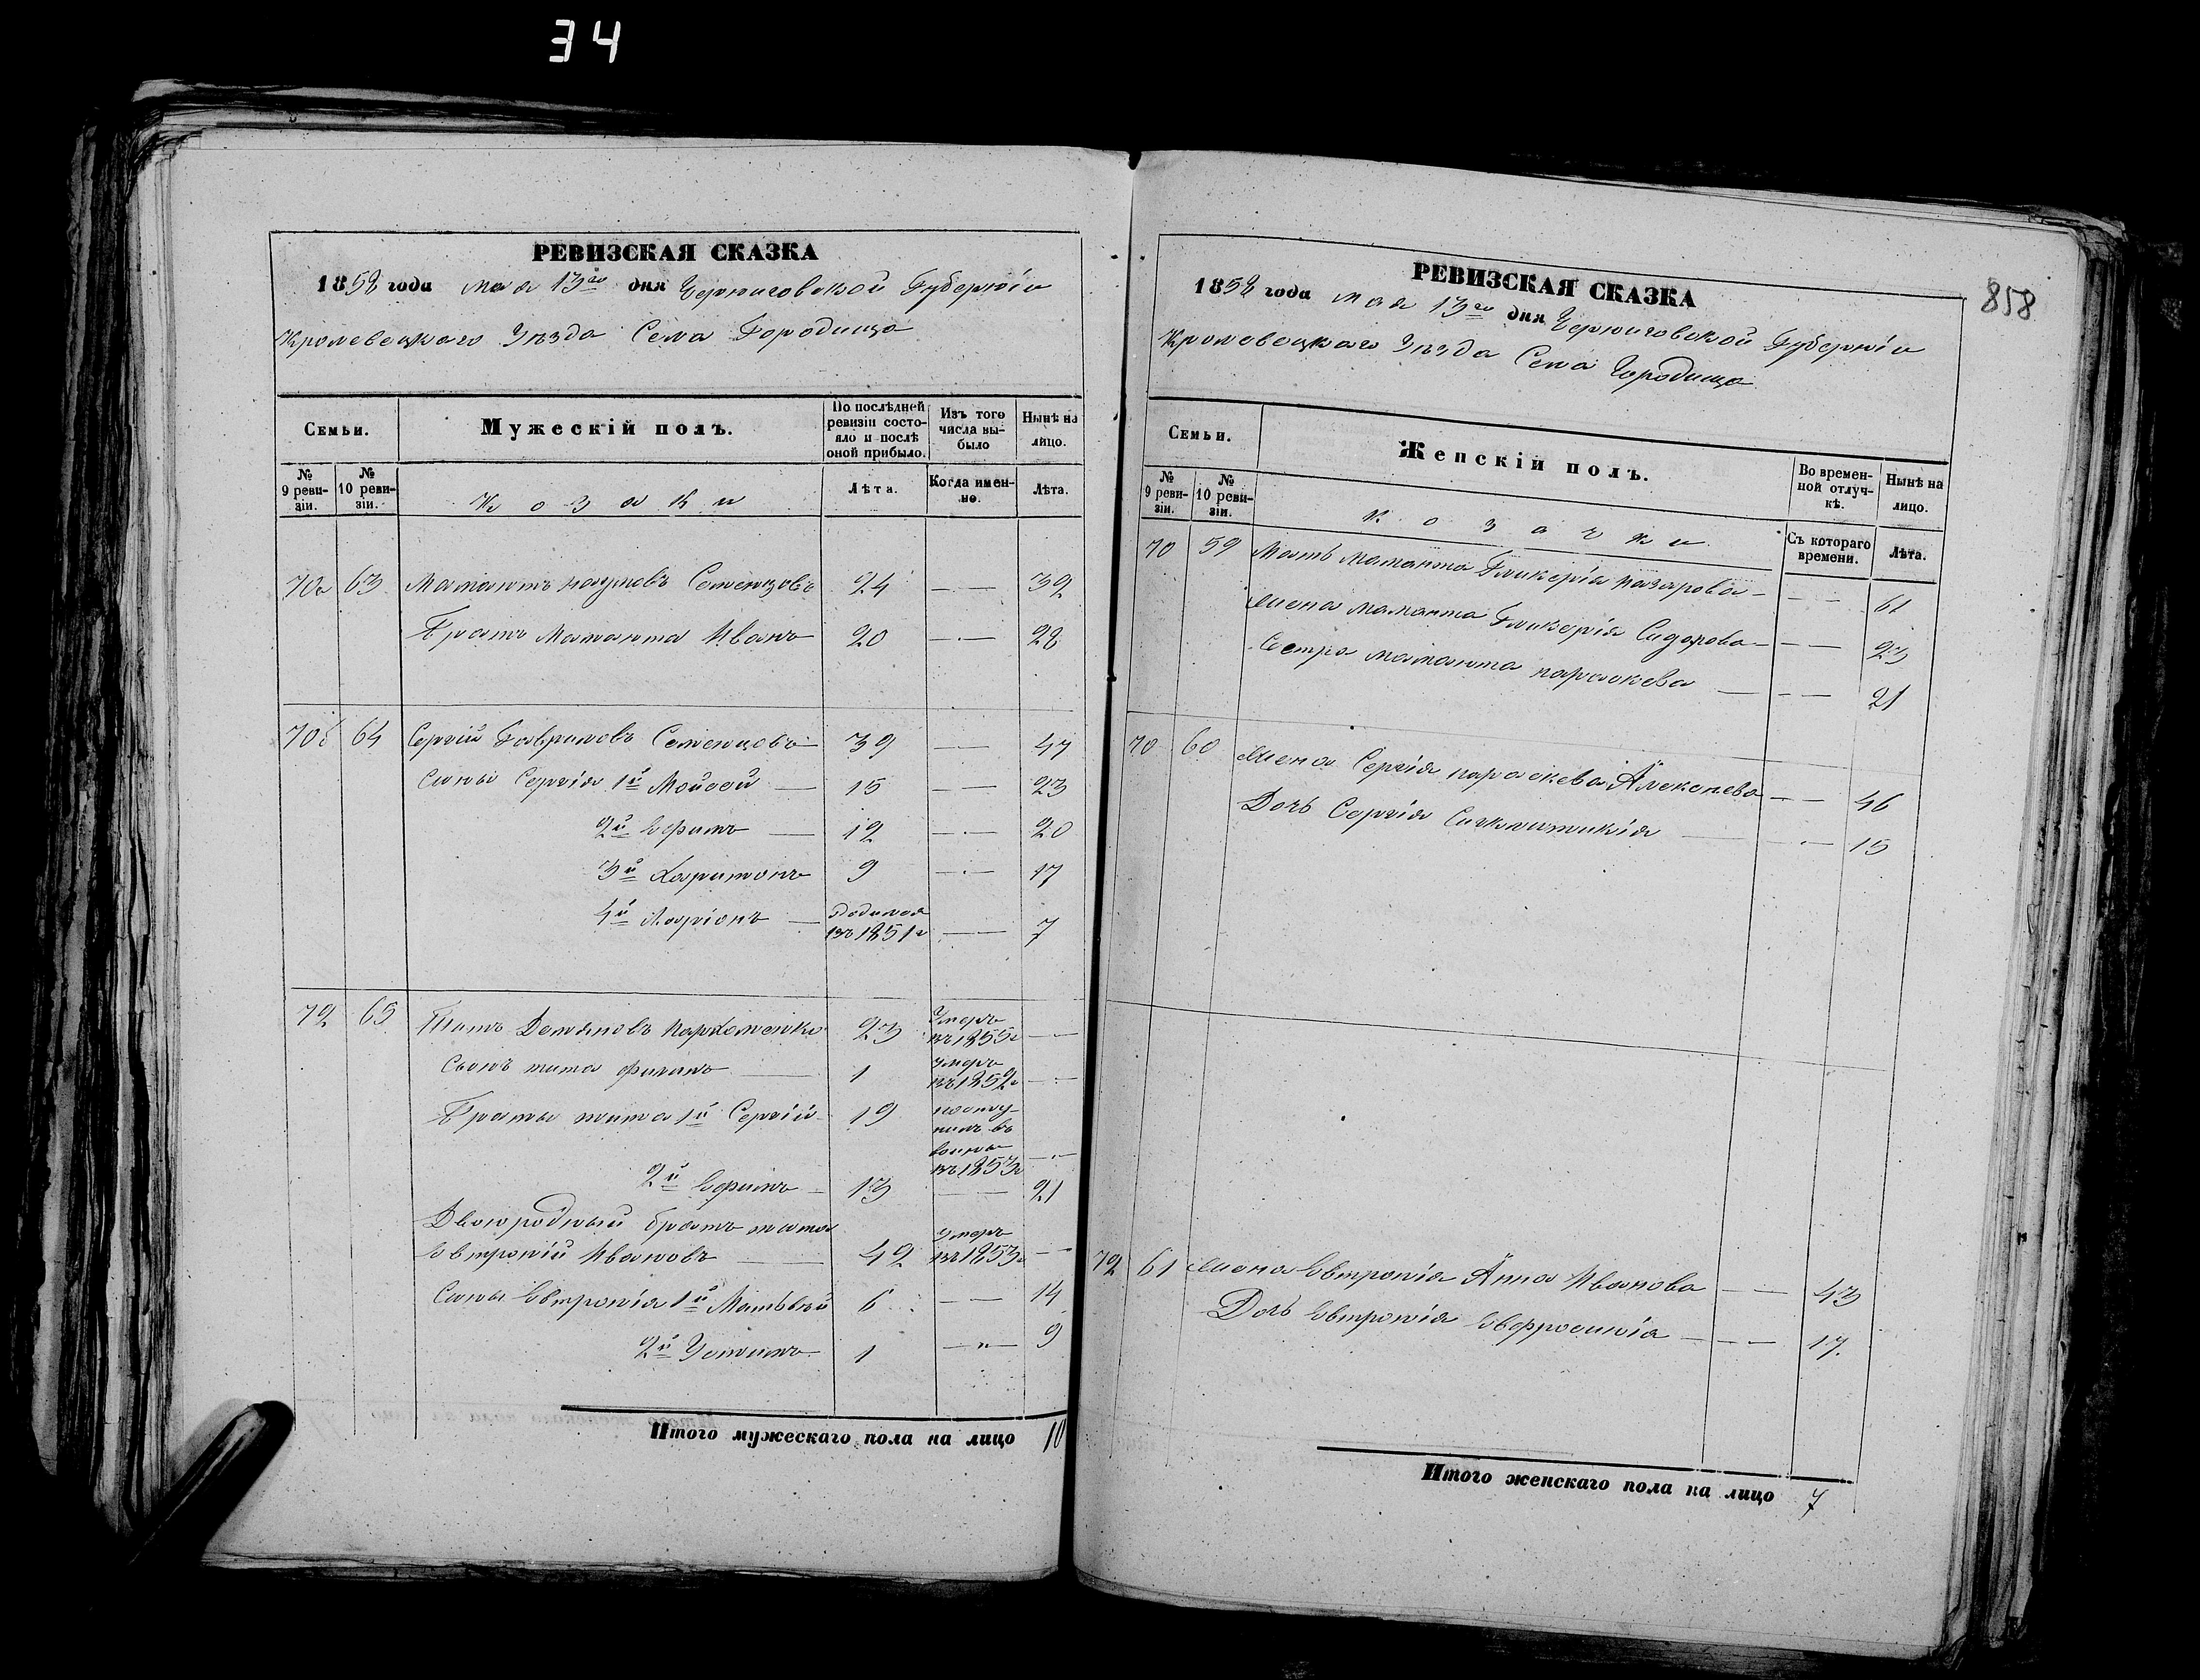 34
РЕВИЗСКАЯ СКАЗКА
1858 года мая 13го дня Черниговской Губерніи
Кролевецкаго Уѣзда Села Городища
Семьи.
Мужескій полъ.
По послѣдней ревизіи состояло и послѣ оной прибыло.
Изъ того числа выбыло
Нынѣ на лицо.
№ 9 ревизіи.
№ 10 ревизіи.
Козаки
Лѣта.
Когда именно.
Лѣта.
70а 63 Мамантъ Наумовъ Семенцовъ 24 — 32
Братъ Маманта Иванъ 20 — 28
70б 64 Сергій Гавриловъ Семенцовъ 39 — 47
Сыны Сергія 1й Мойсей — 15 — 23
2й Ефимъ — 12 — 20
3й Харитонъ 9 — 17
4й Ларіонъ — родился въ 1851г — 7
72 65 Титъ Демяновъ Пархоменко 23 умеръ въ 1855г —
Сынъ Тита Филипъ — 1 умеръ въ 1852г —
Браты Тита 1й Сергій 19 поступилъ въ воины въ 1853г —
2й Ефимъ — 13 — 21
Двоюродный братъ Тита
Евтропій Ивановъ — 42 умеръ въ 1853г —
Сыны Евтропія 1й Матвѣй 6 — 14
2й Устимъ 1 — " — 9
Итого мужескаго пола на лицо 10
858
РЕВИЗСКАЯ СКАЗКА
1858 года мая 13го дня Черниговской Губерніи
Кролевецкаго Уѣзда Села Городища
Семьи.
Женскій полъ.
Во временной отлучкѣ.
Нынѣ на лицо.
№ 9 ревизіи.
№ 10 ревизіи.
Козачки
Съ котораго времени.
Лѣта.
70 59 Мать Маманта Гликерія Назарова — 61
Жена Маманта Гликерія Сидорова — 23
Сестра Маманта Параскева — 21
70 60 Жена Сергія Параскева Алексѣева — 46
Дочь Сергія Синклитикія — 15
72 61 Жена Евтропія Анна Иванова — 43
Дочь Евтропія Евфросинія — 17.
Итого женскаго пола на лицо 7